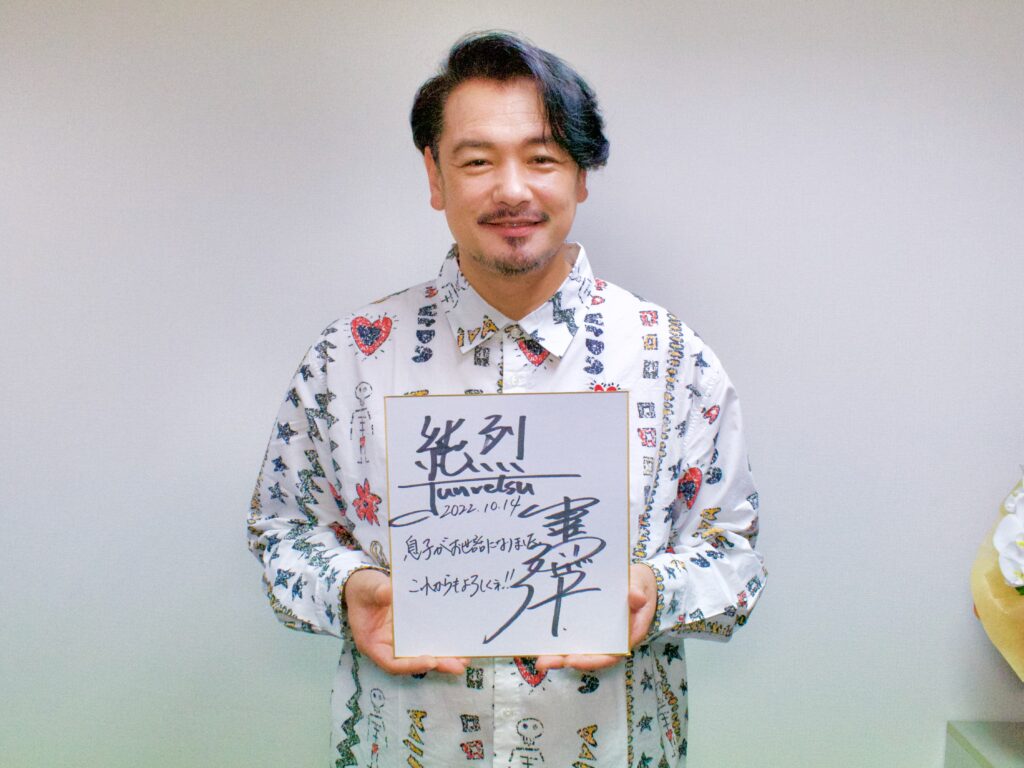 純烈
Junretsu
2022.10.14
息子がお世話になりました
これからもよろしくぇ!!